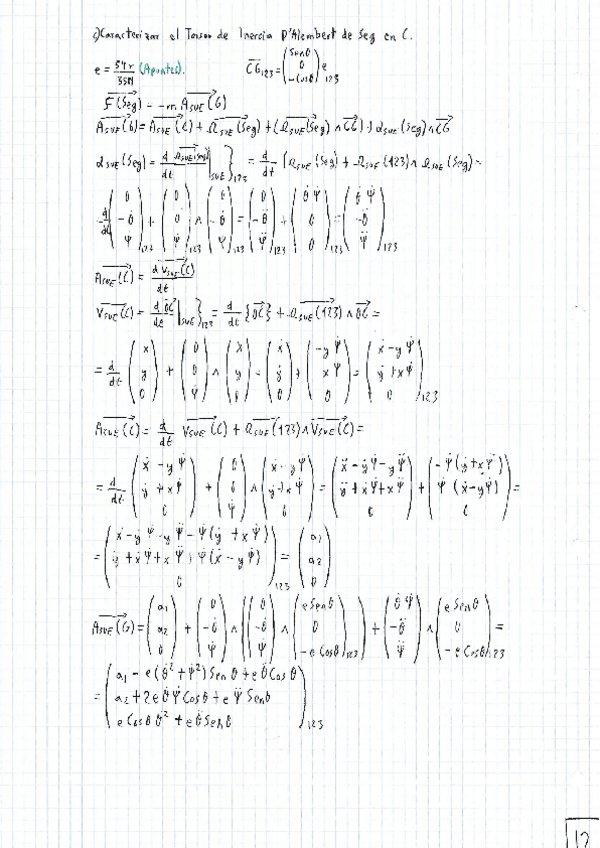 c) Caracterizar el Torsor de Inercia D'Alembert de Seg en C.
e = 54r/35π (Apuntes). CG₁₂₃ = (Senθ, 0, -Cosθ) e ₁₂₃
F(Seg) = -m A_SUE(G)
A_SUE(G) = A_SUE(C) + Ω_SUE(Seg) ∧ (Ω_SUE(Seg) ∧ CG) + α_SUE(Seg) ∧ CG
α_SUE(Seg) = d Ω_SUE(Seg)/dt |_SUE}₁₂₃ = d/dt {Ω_SUE(Seg) + Ω_SUE(123) ∧ Ω_SUE(Seg) =
d/dt (0, -θ̇, ψ̇)₁₂₃ + (0, 0, ψ̇)₁₂₃ ∧ (0, -θ̇, ψ̇)₁₂₃ = (0, -θ̈, ψ̈)₁₂₃ + (θ̇ψ̇, 0, 0)₁₂₃ = (θ̇ψ̇, -θ̈, ψ̈)₁₂₃
A_SUE(C) = d V_SUE(C)/dt
V_SUE(C) = d OC/dt |_SUE}₁₂₃ = d/dt {OC} + Ω_SUE(123) ∧ OC =
= d/dt (x, y, 0) + (0, 0, ψ̇) ∧ (x, y, 0) = (ẋ, ẏ, 0) + (-yψ̇, xψ̇, 0) = (ẋ - yψ̇, ẏ + xψ̇, 0)₁₂₃
A_SUE(C) = d/dt V_SUE(C) + Ω_SUE(123) ∧ V_SUE(C) =
= d/dt (ẋ - yψ̇, ẏ + xψ̇, 0) + (0, 0, ψ̇) ∧ (ẋ - yψ̇, ẏ + xψ̇, 0) = (ẍ - ẏψ̇ - yψ̈, ÿ + ẋψ̇ + xψ̈, 0) + (-ψ̇(ẏ + xψ̇), ψ̇(ẋ - yψ̇), 0) =
= (ẍ - ẏψ̇ - yψ̈ - ψ̇(ẏ + xψ̇), ÿ + ẋψ̇ + xψ̈ + ψ̇(ẋ - yψ̇), 0)₁₂₃ = (a₁, a₂, 0)
A_SUE(G) = (a₁, a₂, 0) + (0, -θ̇, ψ̇) ∧ ((0, -θ̇, ψ̇) ∧ (e Senθ, 0, -e Cosθ)₁₂₃) + (θ̇ψ̇, -θ̈, ψ̈) ∧ (e Senθ, 0, -e Cosθ)₁₂₃ =
= (a₁ - e(θ̇² + ψ̇²) Senθ + e θ̈ Cosθ, a₂ + 2e θ̇ψ̇ Cosθ + e ψ̈ Senθ, e Cosθ θ̇² + e θ̈ Senθ)₁₂₃
12